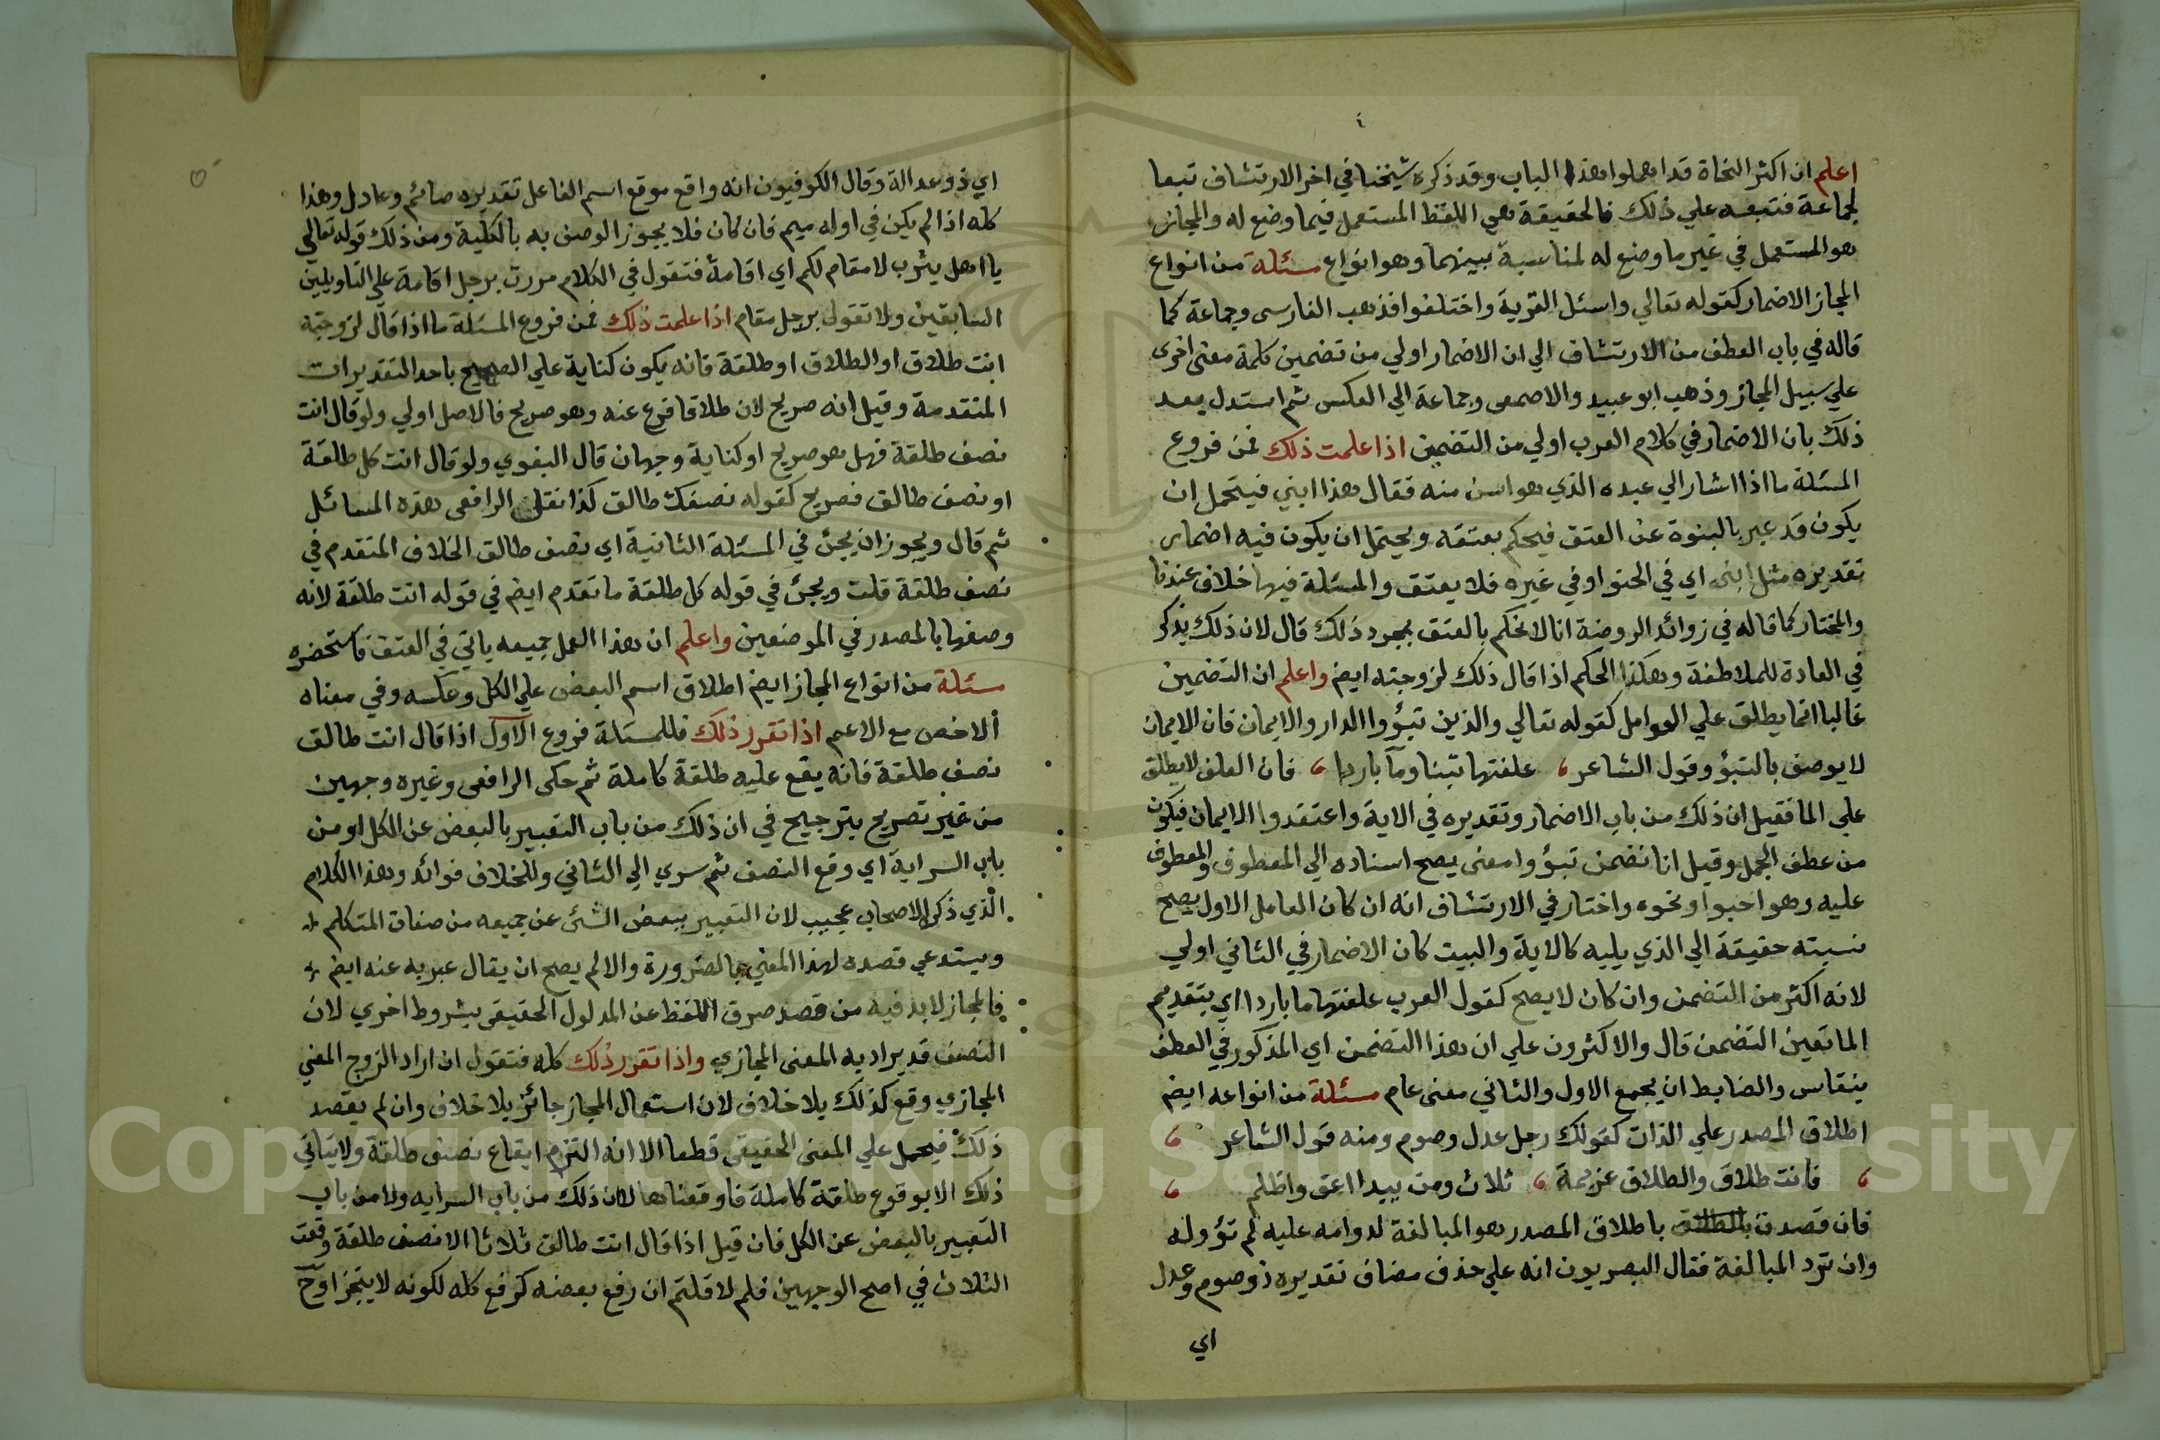 ٤
اعلم ان اكثر النحاة قد اهملوا هذا الباب وقد ذكره شيخنا في اخر الارتشاف تبعا
لجماعة فتبعه علي ذلك فالحقيقة هي اللفظ المستعمل فيما وضع له والمجاز
هو المستعمل في غير ما وضع له لمناسبة بينهما وهو انواع مسئلة من انواع
المجاز الاضمار كقوله تعالي واسئل القرية واختلفوا فذهب الفارسى وجماعة كما
قاله في باب العطف من الارتشاف الي ان الاضمار اولي من تضمين كلمة معنى اخرى
علي سبيل المجاز وذهب ابو عبيد والاصمعى وجماعة الي العكس ثم استدل بعد
ذلك بان الاضمار في كلام العرب اولي من التضمين اذا علمت ذلك فمن فروع
المسئلة ما اذا اشار الي عبده الذي هو اسن منه فقال هذا ابني فيحتمل ان
يكون قد عبر بالبنوة عن العتق فيحكم بعتقه ويحتمل ان يكون فيه اضمار
تقديره مثل ابنى اي في الحنو او في غيره فلا يعتق والمسئلة فيها خلاف عندنا
والمختار كما قاله في زوائد الروضة انا لا نحكم بالعتق بمجرد ذلك قال لان ذلك يذكر
في العادة للملاطفة وهكذا الحكم اذا قال ذلك لزوجته ايض واعلم ان التضمين
غالبا انما يطلق علي العوامل كقوله تعالي والذين تبؤوا الدار والايمان فان الايمان
لا يوصف بالتبؤ وقول الشاعر ، علفتها تبنا وماَ باردا ، فان العلف لا يطلق
علي الما فقيل ان ذلك من باب الاضمار وتقديره في الاية واعتقدوا الايمان فيكون
من عطف الجمل وقيل انا نضمن تبؤوا معنى يصح اسناده الي المعطوف والمعطوف
عليه وهو احبوا ونحوه واختار في الارتشاف انه ان كان العامل الاول يصح
نسبته حقيقة الي الذي يليه كالاية والبيت كان الاضمار في الثاني اولي
لانه اكثر من التضمن وان كان لا يصح كقول العرب علفتها ما باردا اي بتقديم
الما تعين التضمن قال والاكثرون علي ان هذا التضمن اي المذكور في العطف
ينقاس والضابط ان يجمع الاول والثاني معنى عام مسئلة من انواعه ايض
اطلاق المصدر علي الذات كقولك رجل عدل وصوم ومنه قول الشاعر ،
، فانت طلاق والطلاق عزيمة ، ثلاث ومن يبدا اعق واظلم ،
فان قصدت باطلاق المصدر هو المبالغة لدوامه عليه لم تؤوله
وان ترد المبالغة فقال البصريون انه علي حذف مضاف تقديره ذو صوم وعدل
اي
اي ذو عدالة وقال الكوفيون انه واقع موقع اسم الفاعل تقديره صائم وعادل وهذا
كله اذا لم يكن في اوله ميم فان كان فلا يجوز الوصف به بالكلية ومن ذلك قوله تعالي
يا اهل يثرب لا مقام لكم اي اقامة فتقول في الكلام مررت برجل اقامة علي التاويلين
السابقين ولا تقول برجل مقام اذا علمت ذلك فمن فروع المسئلة ما اذا قال لزوجته
انت طلاق او الطلاق او طلقة فانه يكون كناية علي الصحيح باحد التقديرات
المتقدمة وقيل انه صريح لان طلاقا فرع عنه وهو صريح فالاصل اولي ولو قال انت
نصف طلقة فهل هو صريح او كناية وجهان قال البغوي ولو قال انت كل طلقة
او نصف طالق فصريح كقوله نصفك طالق كذا نقل الرافعى هذه المسائل
ثم قال ويجوز ان يجئ في المسئلة الثانية اي نصف طالق الخلاف المتقدم في
نصف طلقة قلت ويجئ في قوله كل طلقة ما تقدم ايض في قوله انت طلقة لانه
وصفها بالمصدر في الموضعين واعلم ان هذا العمل جميعه ياتي في العتق فاستحضره
مسئلة من انواع المجاز ايض اطلاق اسم البعض علي الكل وعكسه وفي معناه
الاخص مع الاعم اذا تقرر ذلك فللمسئلة فروع الاول اذا قال انت طالق
نصف طلقة فانه يقع عليه طلقة كاملة ثم حكى الرافعى وغيره وجهين
من غير تصريح بترجيح في ان ذلك من باب التعبير بالبعض عن الكل او من
باب السراية اي وقع النصف ثم سري الي الثاني وللخلاف فوائد وهذا الكلام
الذي ذكره الاصحاب عجيب لان التعبير ببعض الشئ عن جميعه من صفات المتكلم
ويستدعي قصده لهذا المعني بالضرورة والا لم يصح ان يقال عبر به عنه ايض
فالمجاز لا بد فيه من قصد صرف اللفظ عن المدلول الحقيقى بشروط اخري لان
النصف قد يراد به المعنى المجازي واذا تقرر ذلك كله فتقول ان اراد الزوج المعني
المجازي وقع كذلك بلا خلاف لان استعمال المجاز جائز بلا خلاف وان لم يقصد
ذلك فيحمل علي المعنى الحقيقى قطعا الا انه التزم ايقاع نصف طلقة ولا يتاتي
ذلك الا بوقوع طلقة كاملة فاوقعناها لان ذلك من باب السرايه ولا من باب
التعبير بالبعض عن الكل فان قيل اذا قال انت طالق ثلاثا الا نصف طلقة وقعت
الثلاث في اصح الوجهين فلم لا قلتم ان رفع بعضه كرفع كله لكونه لا يتجزا وح
Copyright © King Saud University